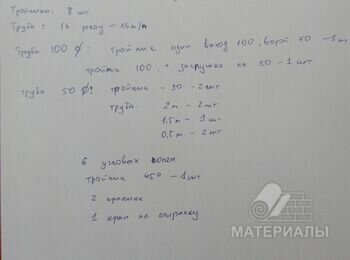 Тройники: 8 шт
Труба: 16 рехау - 13 м/п
Труба 100 ф: тройник один выход 100, второй 50 - 1 шт
тройник 100, + заглушка на 50 - 1 шт
труба 50 ф: тройник - 50 - 2 шт
труба: 2м - 2 шт
1,5м - 1 шт
0,5м - 2 шт
6 угловых колен
тройник 45° - 1 шт
2 крепика
1 кран на стиралку
МАТЕРИАЛЫ